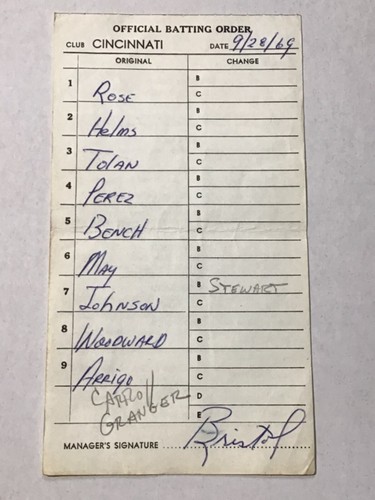 OFFICIAL BATTING ORDER
CLUB CINCINNATI DATE 9/28/69
ORIGINAL CHANGE
1 Rose B
C
2 Helms B
C
3 Tolan B
C
4 Perez B
C
5 Bench B
C
6 May B
C
7 Johnson B Stewart
C
8 Woodward B
C
9 Arrigo B
C
Carroll D
Granger E
MANAGER'S SIGNATURE Bristol